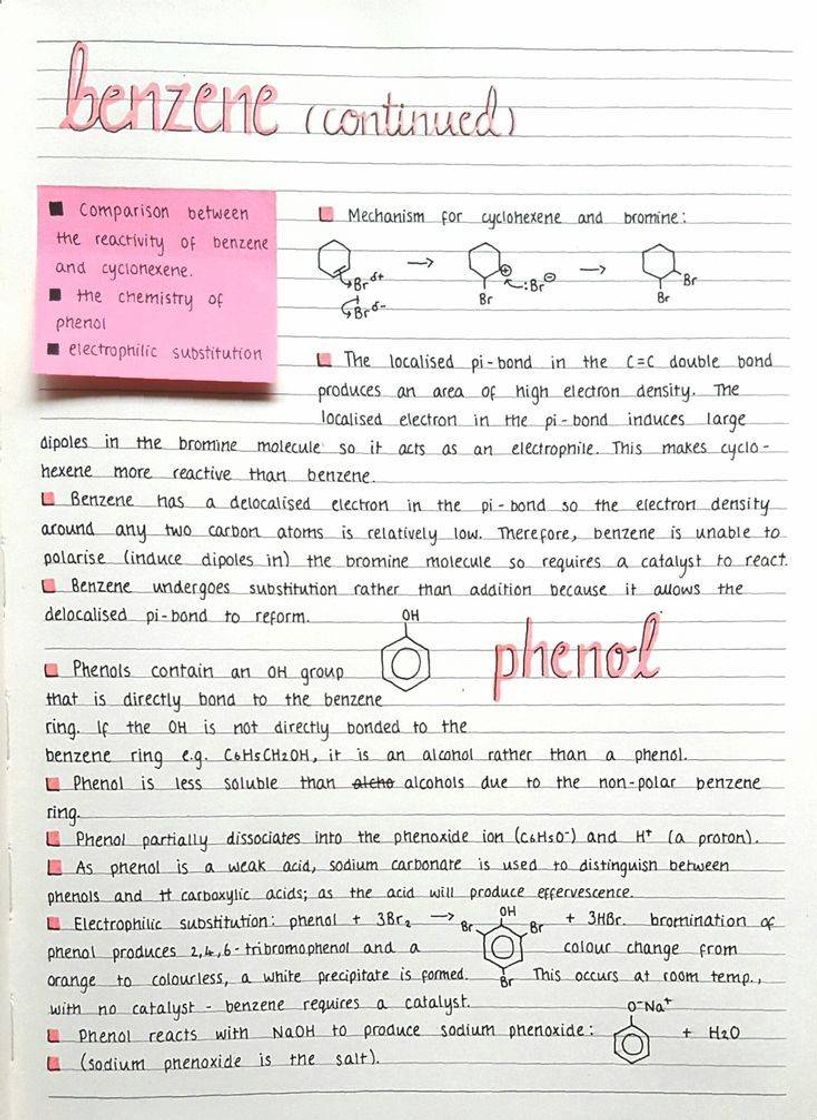 benzene (continued)
■ Comparison between
the reactivity of benzene
and cyclohexene.
■ the chemistry of
phenol
■ electrophilic substitution
Mechanism for cyclohexene and bromine:
Br δ+
Br δ-
→
⊕
Br
:Br⊖
→
Br
Br
The localised pi-bond in the C=C double bond
produces an area of high electron density. The
localised electron in the pi-bond induces large
dipoles in the bromine molecule so it acts as an electrophile. This makes cyclo-
hexene more reactive than benzene.
Benzene has a delocalised electron in the pi-bond so the electron density
around any two carbon atoms is relatively low. Therefore, benzene is unable to
polarise (induce dipoles in) the bromine molecule so requires a catalyst to react.
Benzene undergoes substitution rather than addition because it allows the
delocalised pi-bond to reform.
OH
phenol
Phenols contain an OH group
that is directly bond to the benzene
ring. If the OH is not directly bonded to the
benzene ring e.g. C6H5CH2OH, it is an alcohol rather than a phenol.
Phenol is less soluble than alcho alcohols due to the non-polar benzene
ring.
Phenol partially dissociates into the phenoxide ion (C6H5O⁻) and H⁺ (a proton).
As phenol is a weak acid, sodium carbonate is used to distinguish between
phenols and carboxylic acids; as the acid will produce effervescence.
Electrophilic substitution: phenol + 3Br₂ → OH Br Br Br + 3HBr. bromination of
phenol produces 2,4,6-tribromophenol and a colour change from
orange to colourless, a white precipitate is formed. This occurs at room temp.,
with no catalyst - benzene requires a catalyst.
Phenol reacts with NaOH to produce sodium phenoxide: O⁻Na⁺ + H2O
(sodium phenoxide is the salt).